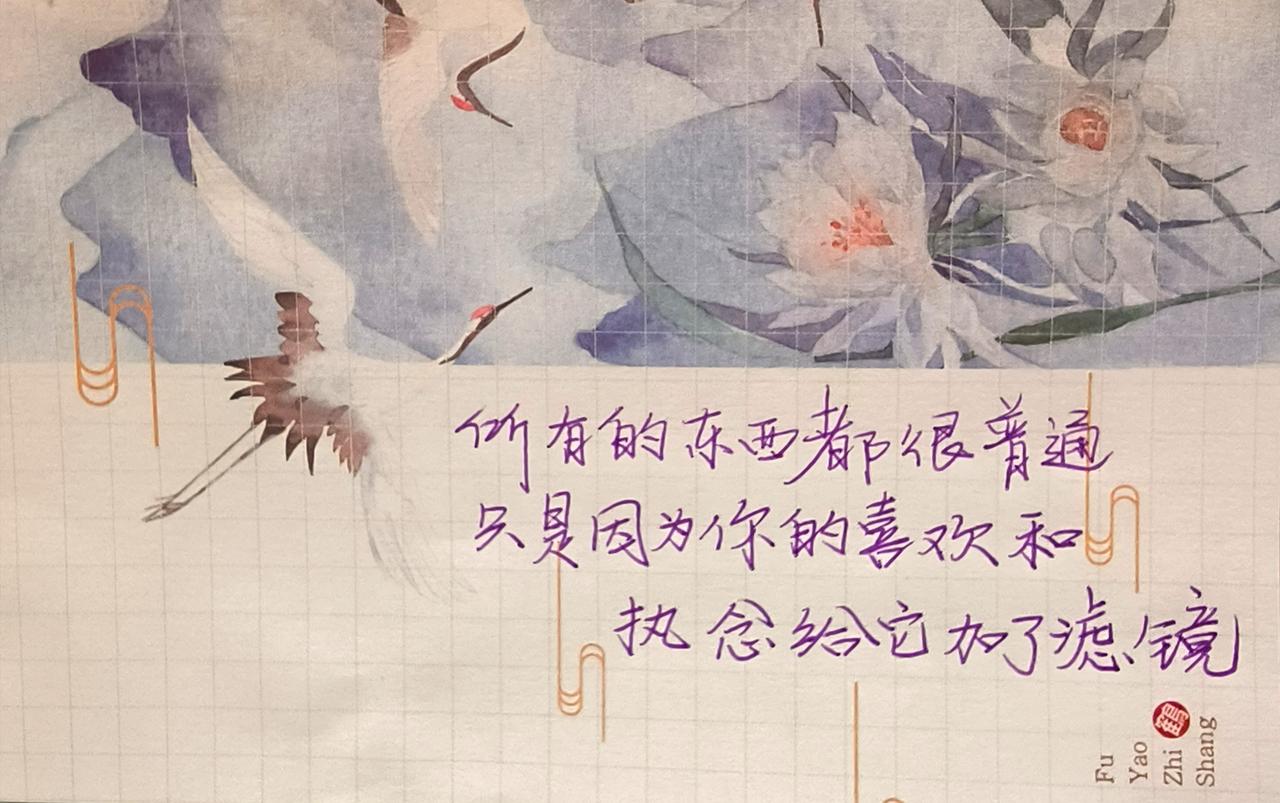 所有的东西都很普通
只是因为你的喜欢和
执念给它加了滤镜
Fu
Yao
Zhi
Shang